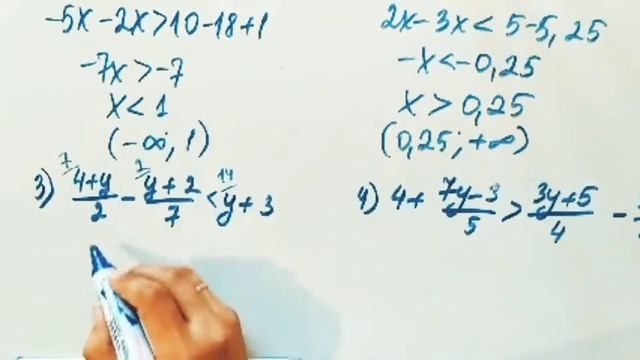 -5x-2x>10-18+1
-7x>-7
x<1
(-∞; 1)
2x-3x<5-5,25
-x<-0,25
x>0,25
(0,25; +∞)
3) 7/ 4+y/2 - 2/ y+2/7 < 14/ y+3
4) 4+ 7y-3/5 > 3y+5/4 -